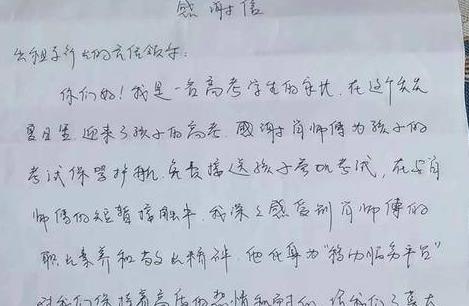 感谢信
出租车行业的各位领导:
你们好！我是一名高考学生的家长,在这个炎炎
夏日里,迎来了孩子的高考。感谢肖师傅为孩子的
考试保驾护航,免费接送孩子参加考试,在与肖
师傅的短暂接触中,我深深感受到肖师傅的
职业素养和敬业精神。他化身为“移动服务平台”
对我们保持着高度的热情和